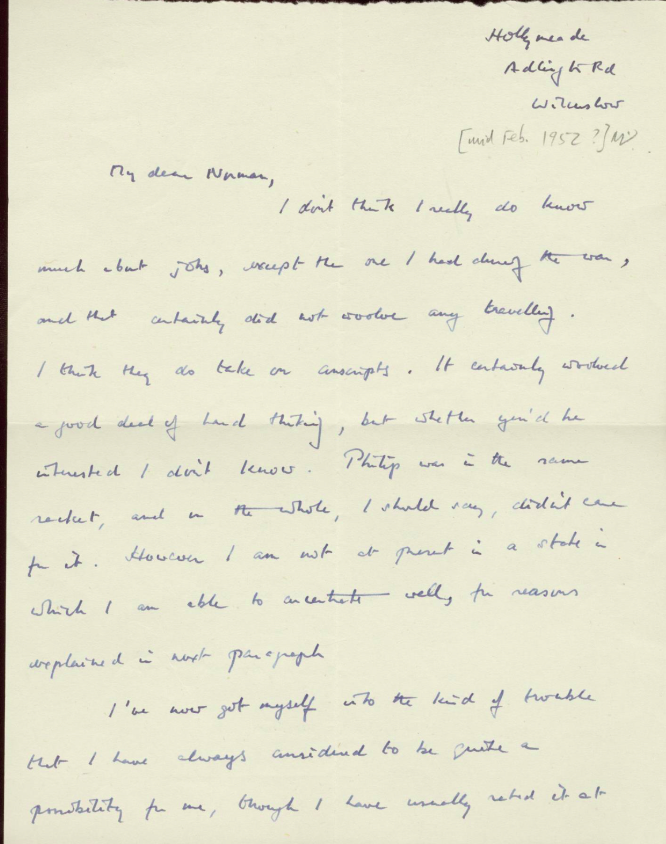 Hollymeade
Adlington Rd
Wilmslow
[mid Feb. 1952?]
My dear Norman,
I don't think I really do know
much about jobs, except the one I had during the war,
and that certainly did not involve any travelling.
I think they do take on conscripts. It certainly involved
a good deal of hard thinking, but whether you'd be
interested I don't know. Philip was in the same
racket, and on the whole, I should say, didn't care
for it. However I am not at present in a state in
which I am able to concentrate well, for reasons
explained in next paragraph
I've now got myself into the kind of trouble
that I have always considered to be quite a
possibility for me, though I have usually rated it at